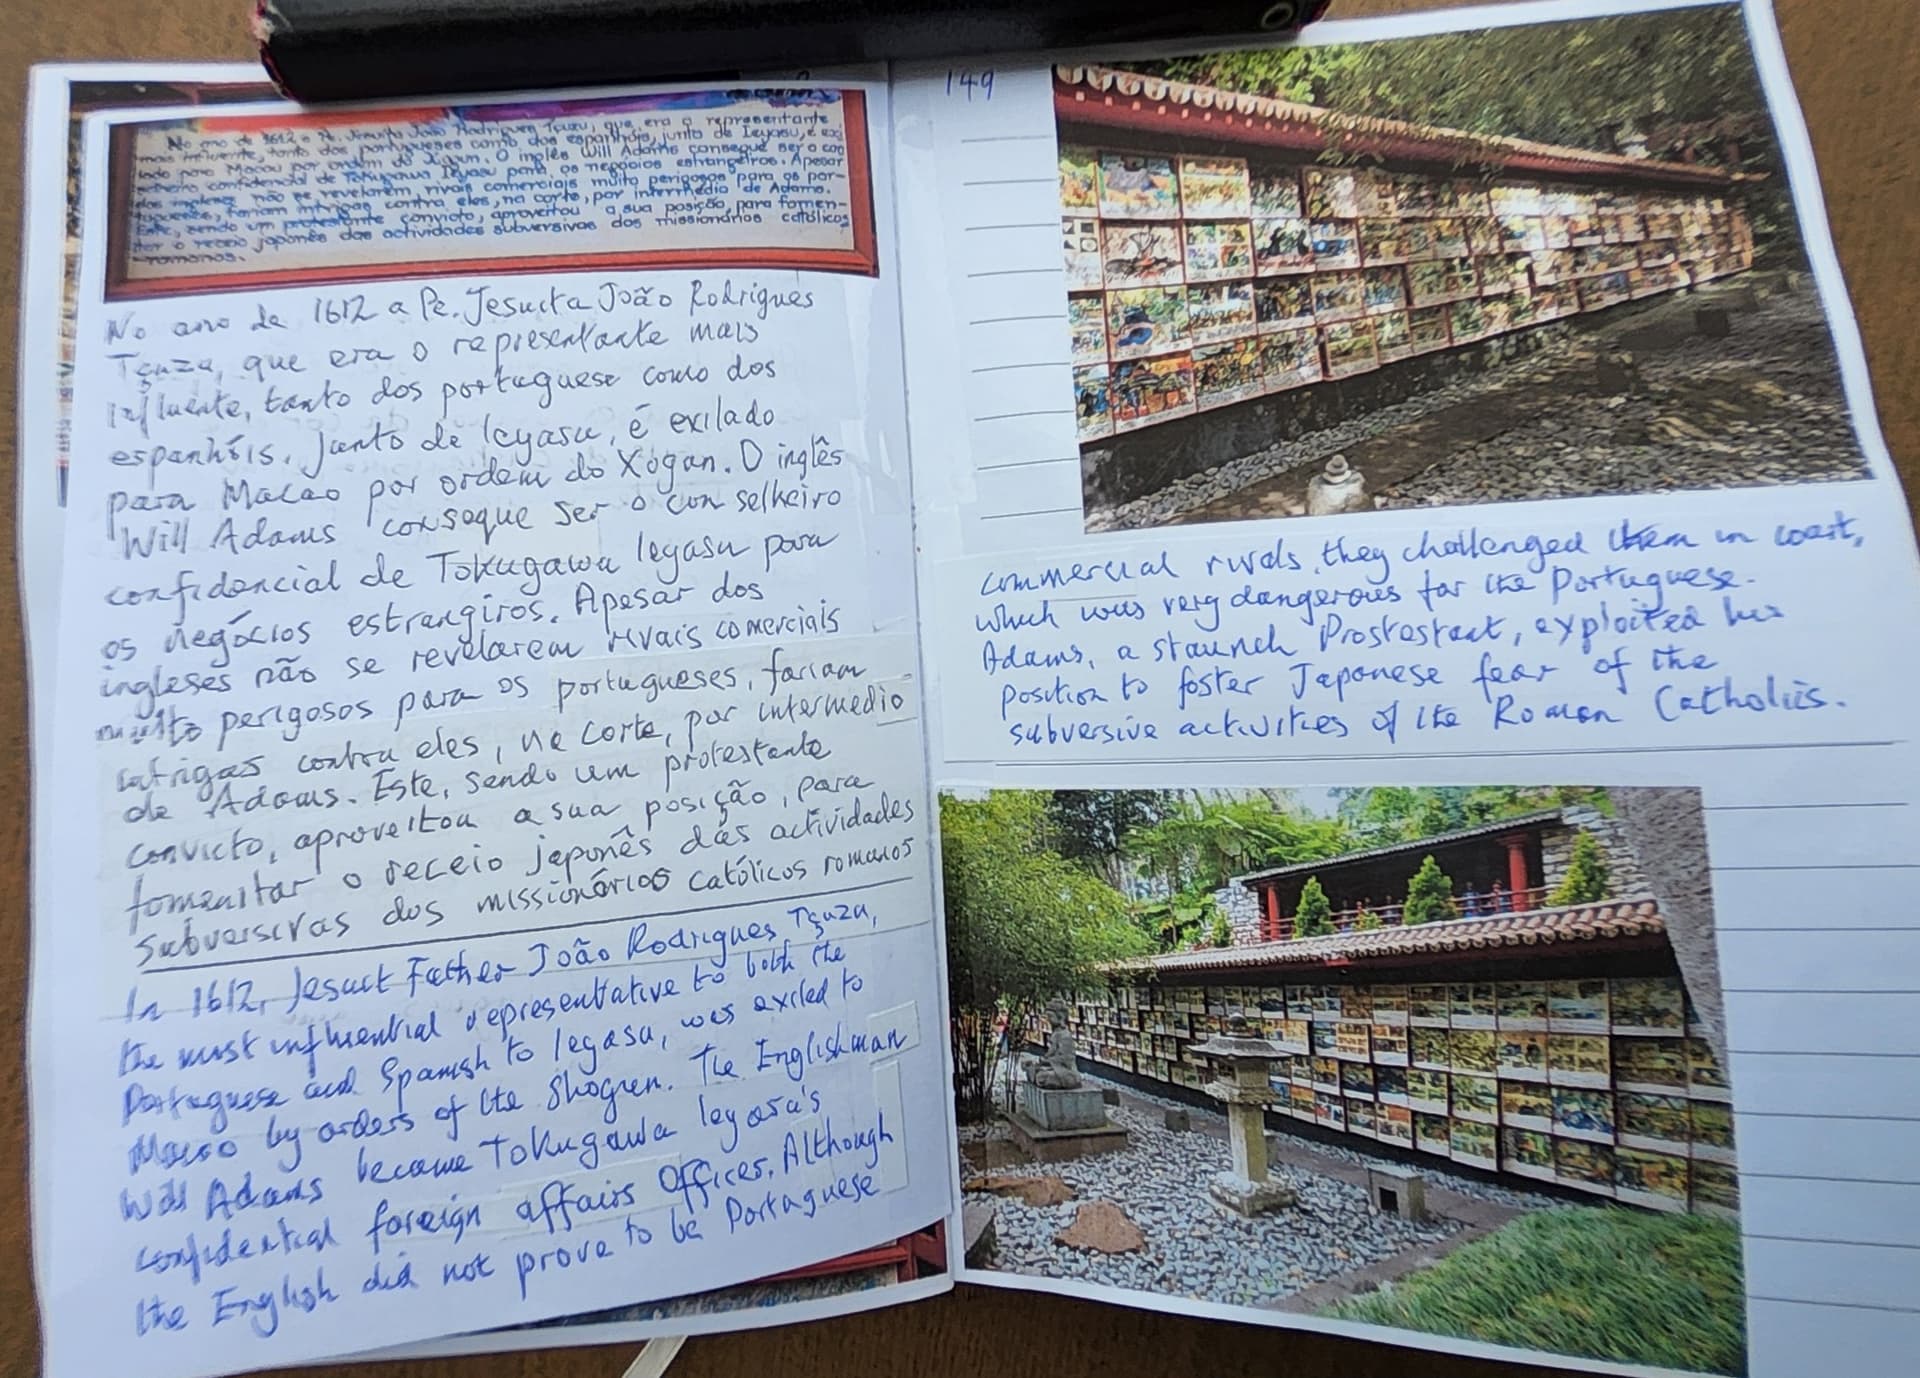 No ano de 1612 o Pe. Jesuita João Rodrigues Tçuzu, que era o representante
mais influente, tanto dos portugueses como dos espanhóis, junto de Ieyasu, é exi
lado para Macau por ordem do Xógun. O inglês Will Adams consegue ser o con
selheiro confidencial de Tokugawa Ieyasu para os negócios estrangeiros. Apesar
dos ingleses não se revelarem, rivais comerciais muito perigosos para os por-
tugueses, fariam intrigas contra eles, na corte, por intermédio de Adams.
Este, sendo um protestante convicto, aproveitou a sua posição, para fomen-
tar o receio japonês das actividades subversivas dos missionários católicos
romanos.
No ano de 1612 a Pe. Jesuita João Rodrigues
Tçuza, que era o representante mais
influente, tanto dos portuguese como dos
espanhóis, junto de Ieyasu, é exilado
para Macao por ordem do Xogan. O inglês
Will Adams conseque ser o con selheiro
confidencial de Tokugawa Ieyasu para
os negócios estrangiros. Apesar dos
ingleses não se revelarem rivais comerciais
muito perigosos para os portugueses, fariam
intrigas contra eles, na corte, por intermedio
de Adams. Este, sendo um protestante
convicto, aproveitou a sua posição, para
fomentar o receio japonês das actividades
subversivas dos missionários católicos romanos
In 1612, Jesuit Father João Rodrigues Tçuza,
the most influential representative to both the
Portuguese and Spanish to Iegasu, was exiled to
Macao by orders of the Shogun. The Englishman
Will Adams became Tokugawa Iegasu's
confidential foreign affairs Officer. Although
the English did not prove to be Portuguese
149
commercial rivals, they challenged them in court,
which was very dangerous for the Portuguese.
Adams, a staunch Prostestant, exploited his
position to foster Japanese fear of the
subversive activities of the Roman Catholics.